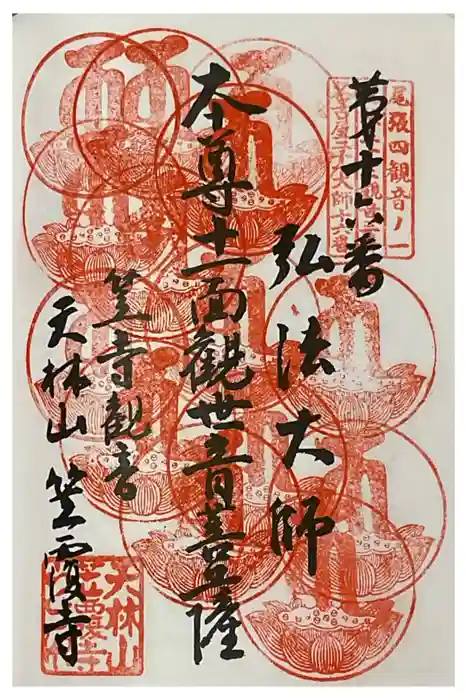 尾張四観音ノ一
大師十六番
第十六番
弘法大師
本尊十一面観世音菩薩
笠寺観音
天林山 笠覆寺
天林山
笠覆寺